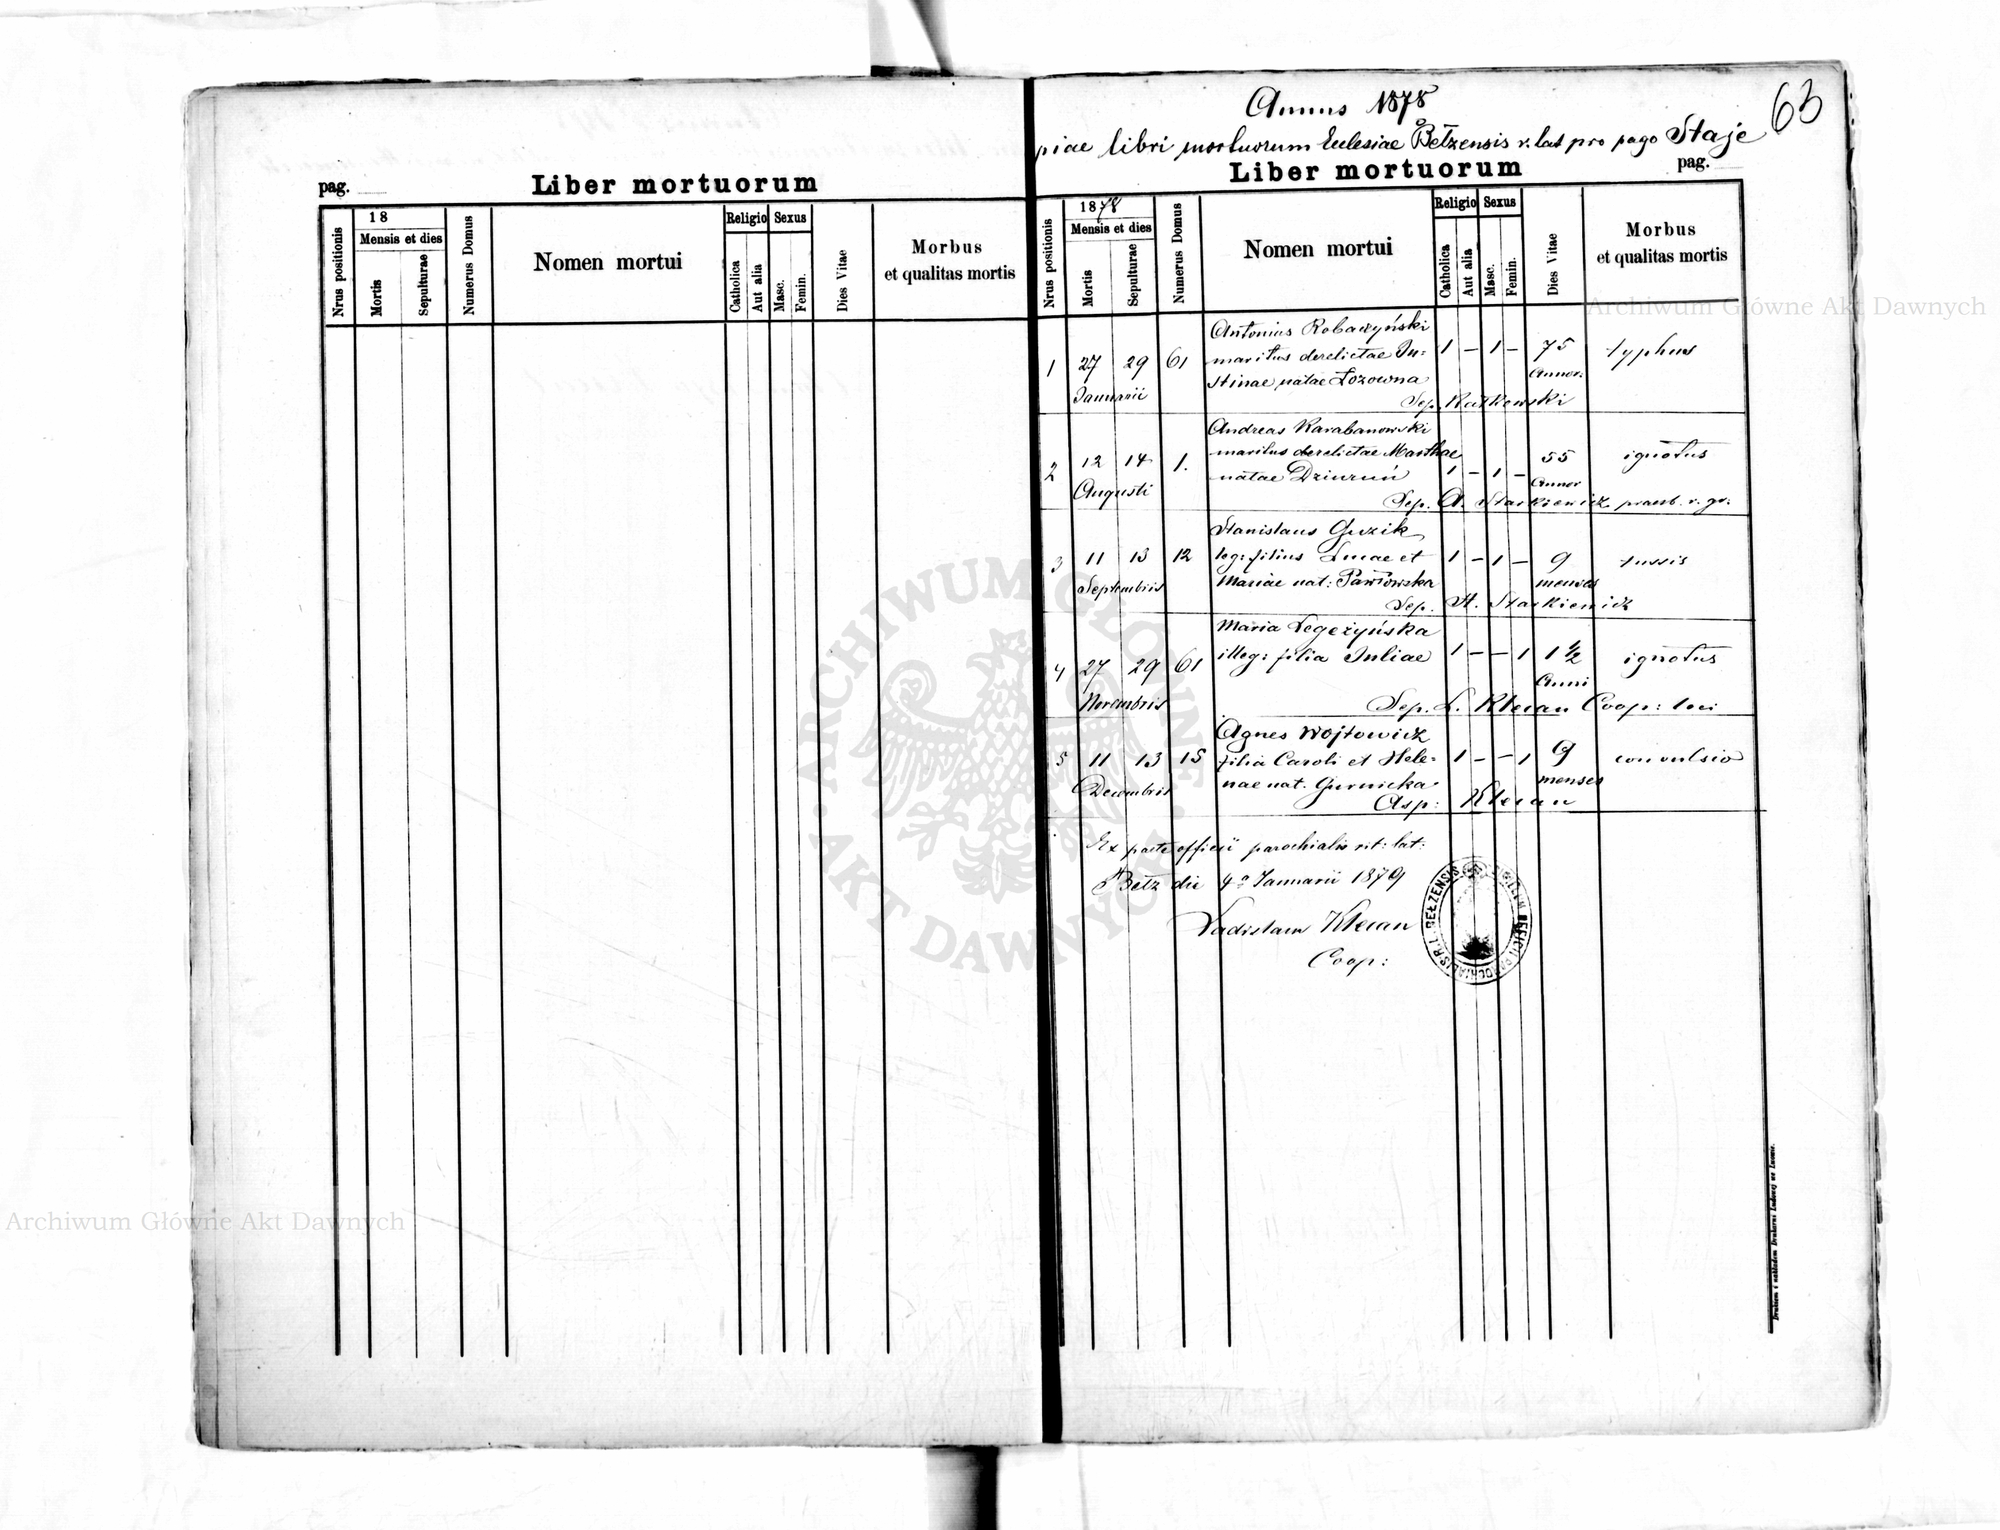 pag.
Liber mortuorum
Nrus positionis
18
Mensis et dies
Mortis
Sepulturae
Numerus Domus
Nomen mortui
Religio
Catholica
Aut alia
Sexus
Masc.
Femin.
Dies Vitae
Morbus
et qualitas mortis
63
Annus 1878
piae libri mortuorum Ecclesiae Bełzensis r. lat pro pago Staje
Liber mortuorum
pag.
Nrus positionis
1878
Mensis et dies
Mortis
Sepulturae
Numerus Domus
Nomen mortui
Religio
Catholica
Aut alia
Sexus
Masc.
Femin.
Dies Vitae
Morbus
et qualitas mortis
Antonius Robaczyński
1 27 29 61 maritus derelictae Ju= 1 – 1 – 75 typhus
Januarii stinae natae Łozowna Annor.
Sep. Ratkowski
Andreas Karabanowski
2 12 14 1. maritus derelictae Marthae 1 – 1 – 55 ignotus
Augusti natae Dziurun Annor
Sep. A. Starkiewicz praesb. r. gr.
Stanislaus Guzik
3 11 13 12 leg: filius Lucae et 1 – 1 – 9 tussis
Septembris Mariae nat: Pawłowska menses
Sep. A. Starkiewicz
Maria Legeżyńska
4 27 29 61 illeg: filia Juliae 1 – – 1 1½ ignotus
Novembris Anni
Sep. L. Klecan Coop: loci
Agnes Wojtowicz
5 11 13 15 filia Caroli et Hele= 1 – – 1 9 convulsio
Decembris nae nat. Gurnicka menses
Asp: Klecan
Ex parte officii parochialis rit: lat:
Bełz die 4º Januarii 1879
Ladislaus Klecan
Coop:
Drukiem i nakładem Drukarni Ludowej we Lwowie.
ARCHIWUM GŁÓWNE AKT DAWNYCH
Archiwum Główne Akt Dawnych
Archiwum Główne Akt Dawnych